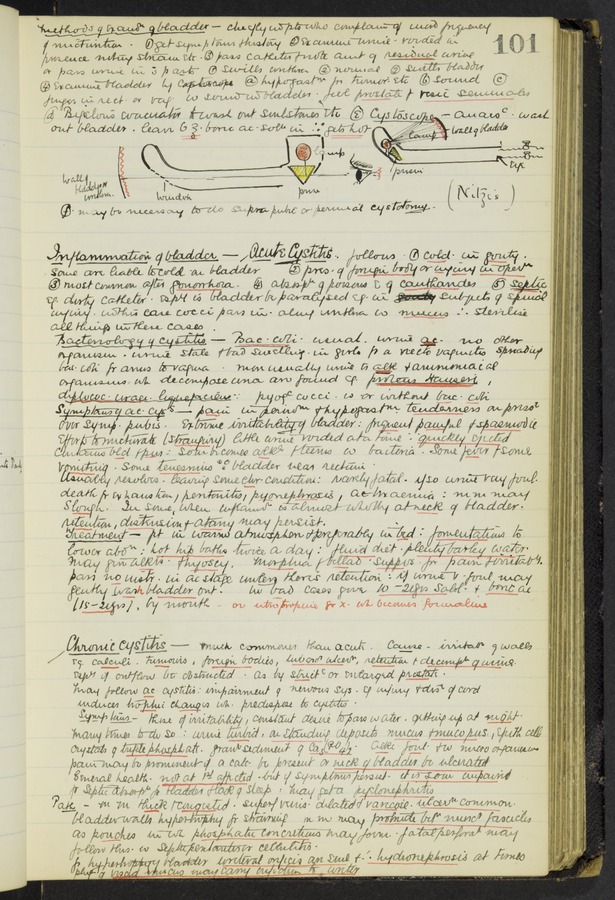 101
Methods of exam^n of bladder — chiefly in pts who complain of and frequency
of micturition. ① get symptoms & history ② Examine urine - voided in
presence noting stream etc. ③ pass catheter & note amt of residual urine
or pass urine in 3 parts. ① swills urethra ② normal ③ bladder
④ Examine bladder by ⓐ hypogast^m for tumor etc ⓑ sound ⓒ
finger in rect or vag. sound in bladder. feel prostate & vesic seminales
ⓓ Bigelow's evacuator & wash out etc ⓔ Cystoscope — anaes^c. wash
out bladder. leave 6 ℥ boric ac. sol^n in ∴ gets hot
lamp
lamp
wall of bladder
wall of bladder
window
prism
prism
eye
(Nitze's)
ⓕ may be necessary to do supra pubic or perineal cystotomy.
Inflammation of bladder — Acute Cystitis. follows ① cold in gouty.
some are liable to cold in bladder ② pres. of foreign body or injury in oper^n
③ most common after gonorrhoea. ④ absorp^n of poisons eg cantharides ⑤ septic
eg dirty catheter. esp^ly is bladder be paralysed eg in subjects of spinal
injury. in this case cocci pass in along urethra in mucus ∴ sterilise
all things in these cases.
Bacteriology of cystitis — Bac. coli. usual. urine ac. no other
organism. urine stale & bad smelling. in girls fr a recto vaginitis spreading
bac coli fr anus to vagina. more usually urine is alk & ammoniacal
organisms wh decompose urea are found eg proteus Hauseri,
diplococ. ureae liquefaciens: pyog^c cocci. is or without bac. coli
Symptoms of ac. cys^s — pain in perineum & hypogast^m tenderness on press^e
over symp. pubis. Extreme irritability of bladder: frequent painful & spasmodic
effort to micturate (strangury) little urine voided at a time: quickly ejected
contains blood & pus: soon becomes alk^e & teems w bacteria. Some fever & some
vomiting. Some tenesmus bladder near rectum.
Usually resolves. leaving some chr condition: rarely fatal. if so urine very foul.
death fr exhaustion, peritonitis, pyonephrosis, or uraemia: m m may
slough. In some, when inflam^n is almost wholly at neck of bladder.
retention, distension & atony may persist.
Treatment — pt in warm atmosphere & preferably in bed: fomentations to
lower abd^n: hot hip baths twice a day: fluid diet. plenty barley water.
may give alk^s. + hyoscy. morphia & bellad. suppos for pain & irritab^y.
pass no instr. in ac stage unless there is retention: if urine v foul may
gently wash bladder out. In bad cases give 10-20grs Salol & boric ac
(15-20grs), by mouth — or urotropine gr x. wh becomes formaline
Chronic cystitis — much commoner than acute. Cause - irritat^n of walls
eg calculi, tumours, foreign bodies, tuberc^s ulcer^n, retention & decomp^n of urine.
esp^y if outflow be obstructed. as by strict^e or enlarged prostate.
may follow ac cystitis. impairment of nervous sys. eg injury & dis^s of cord
induces trophic changes wh. predispose to cystitis.
Symptoms — those of irritability, constant desire to pass water. getting up at night.
many times to do so: urine turbid. on standing deposits mucus & mucopus, epith cells
crystals of triple phosphate. gran^r sediment of Ca PO. alk^e foul & w micro organisms
pain may be prominent if a calc. be present or neck of bladder be ulcerated
General health. not at 1st affected. but if symptoms persist. it is soon impaired
fr septic absorp^n fr bladder & lack of sleep. may get a pyelonephritis
Path — m m thick & congested. superf veins dilated & varicose. ulcer^n common.
bladder walls hypertrophy fr straining m m may protrude bet^n musc^r fasciculi
as pouches in wh phosphatic concretions may form. fatal perfor^n may
follow this. w septic peritonitis or cellulitis.
fr hypertrophy bladder ureteral orifices are small & ∴ hydronephrosis at times